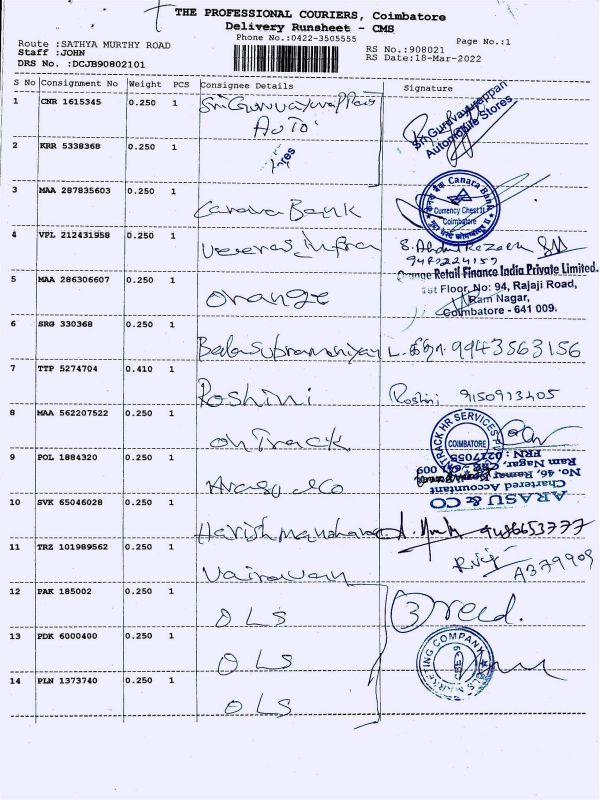 THE PROFESSIONAL COURIERS, Coimbatore
Delivery Runsheet - CMS
Phone No.:0422-3505555
Page No.:1
Route :SATHYA MURTHY ROAD
Staff :JOHN
DRS No. :DCJB90802101
RS No.:908021
RS Date:18-Mar-2022
S No Consignment No Weight PCS Consignee Details Signature
1 CNR 1615345 0.250 1 Sri Guruvayurappan
Auto
Sri Guruvayurappan
Automobile Stores
2 KRR 5338368 0.250 1
3 MAA 287835603 0.250 1 Canara Bank
Canara Bank
Currency Chest II
Coimbatore
4 VPL 212431958 0.250 1 Veeras Infra S. Abdul Razack
9487224157
5 MAA 286306607 0.250 1 Orange
Orange Retail Finance India Private Limited.
1st Floor, No: 94, Rajaji Road,
Ram Nagar,
Coimbatore - 641 009.
6 SRG 330368 0.250 1 Balasubramaniyan 9943563156
7 TTP 5274704 0.410 1 Roshini Roshini 9150913405
8 MAA 562207522 0.250 1 On Track
TRACK HR SERVICES
COIMBATORE
9 POL 1884320 0.250 1 Arasu & Co
ARASU & CO
Chartered Accountant
No. 46, Ramar Kovil
Ram Nagar, CBE - 641 009
FRN :
10 SVK 65046028 0.250 1 Harish Manohara 9486653777
11 TRZ 101989562 0.250 1 Vairavan
A379909
12 PAK 185002 0.250 1 OLS 3 recd.
13 PDK 6000400 0.250 1 OLS
MARKETING COMPANY
CBE-9
14 PLN 1373740 0.250 1 OLS